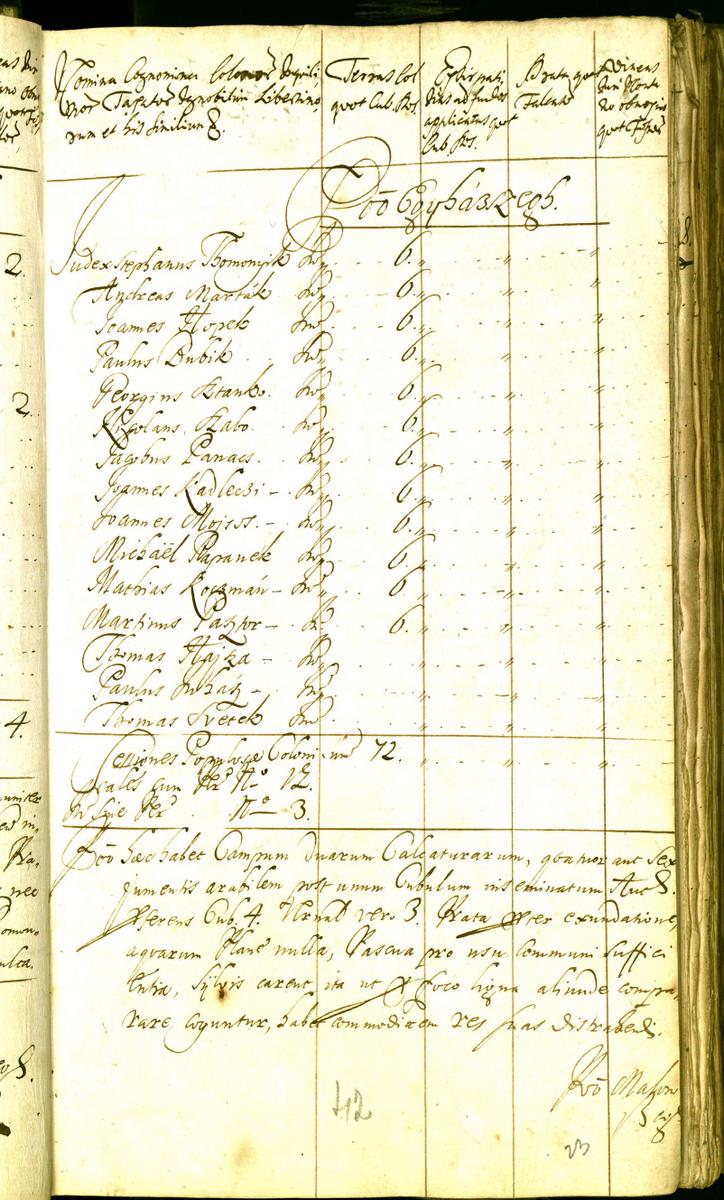 Nomina Cognomina Colonor
nor Taxator Ignobilium Libertino
rum et his similium
Terras Col
quot Cub. Pos.
Exstirpati
tias ad fundos
applicatas quot
Cub. Pos.
Prata quot
Falcator
Vineas
quot Foss
Poõ Egyházszegh.
Judex Stephanus 6 „ „ „
Andreas Marták 6 „ „ „
Joannes Hopek 6 „ „ „
Paulus Dubik 6 „ „ „
Georgius Stanko 6 „ „ „
Nicolaus Szabo 6 „ „ „
Jacobus Panacs 6 „ „ „
Joannes Kadleczi 6 „ „ „
Joannes Mojsos 6 „ „ „
Michaël Papanek 6 „ „ „
Mathias Koczmán 6 „ „ „
Martinus Pasztor 6 „ „ „
Thomas Hajza „ „ „
Paulus Juház „ „ „
Thomas Svetek „ „ „
Sessiones Populosæ Coloni 72. „ „ „
cales cum No 12.
No 3.
Poõ hæc habet Campum duarum Calcaturarum, quatuor aut sex
jumentis arabilem post unum Cubulum inseminatum Auct
fferens Cub. 4. Vernal vero 3. Prata exundatione
aquarum Plane nulla, Pascua pro usu communi suffici
entia, Sylvis caret, ita ut foco ligna aliunde compa,
rare coguntur, habet commoditatem res suas distrahendi.
Poõ
42
23
2.
2
4.
8.